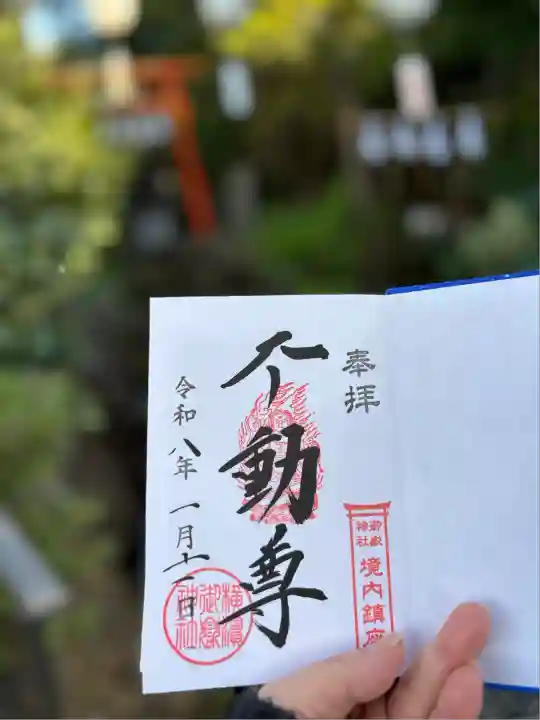 奉拝
御嶽神社
境内鎮座
不動尊
令和八年 一月十一日
横濱御嶽神社